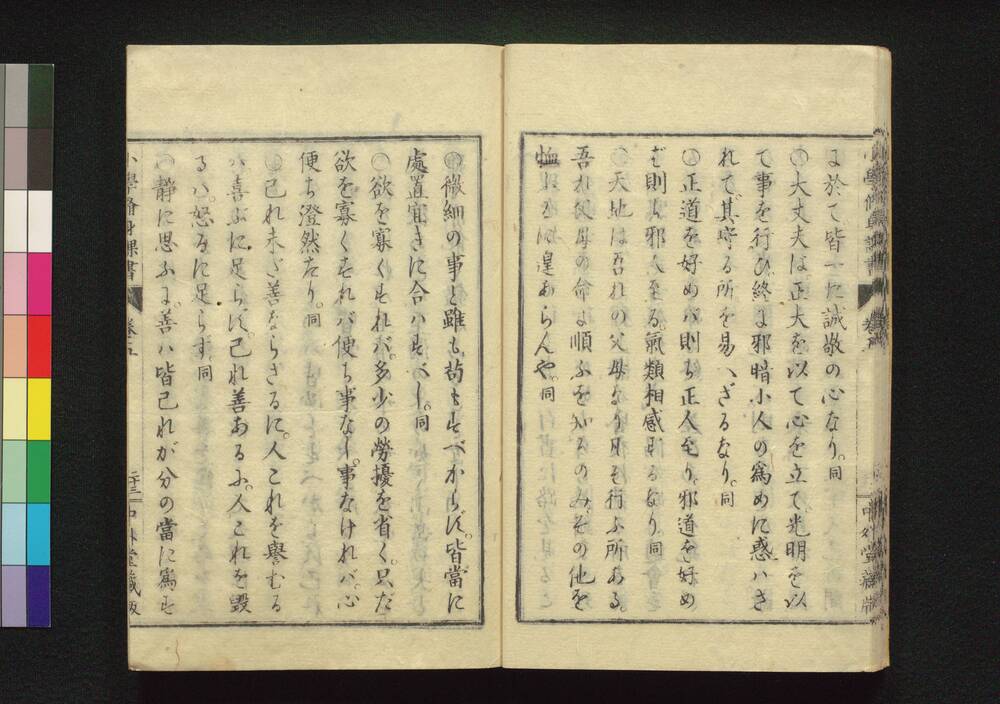 に於て皆一に誠敬の心なり。同
○大丈夫は正大を以て心を立て。光明を以
て事を行ひ終に邪暗小人の為めに惑ハさ
れて其守る所を易へざるなり。同
○正道を好めバ則ち正人至り。邪道を好め
ば則ち邪人至る。氣類相感ずるなり。同
○天地は吾れの父母なり凡そ行ふ所ある。
吾れ父母の命に順ふを知るのみ。その他を
恤ふるに遑あらんや。同
○微細の事と雖も苟もすべからず。皆當に
處置宜きに合ハすべし。同
○欲を寡くすれバ。多少の勞擾を省く。只だ
欲を寡くすれバ便ち事なし。事なけれバ。心
便ち澄然たり。同
○己れ未だ善ならざるに。人これを譽むる
ハ喜ぶに足らず。己れ善あるに。人これを毀
るハ。怒るに足らず。同
○静に思ふに。善ハ皆己れが分の當に為す
小學脩身課書 卷五 二十三 中外堂藏版